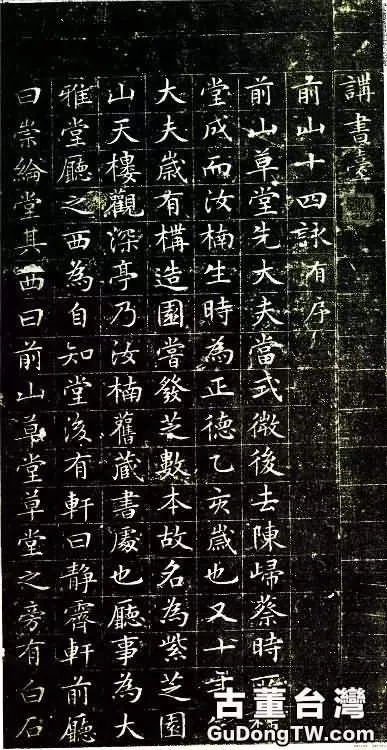 講書臺
前山十四詠有序
前山草堂先大夫當式微後去陳歸蔡時
堂成而汝楠生時為正德乙亥歲也又十年
大夫歲有構造園嘗發芝數本故名為紫芝園
山天樓觀深亭乃汝楠舊藏書處也廳事為大
雅堂廳之西為自知堂後有軒曰靜霽軒前廳
曰崇綸堂其西曰前山草堂草堂之旁有白石
古董台灣
GuDongTW.com